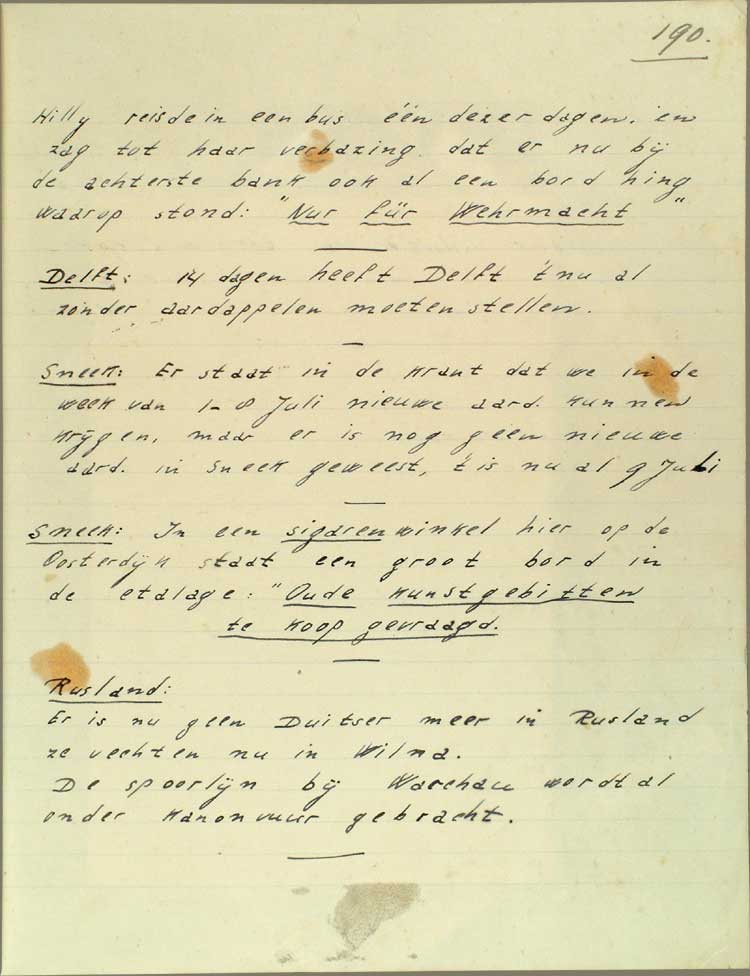 190.
Willy reisde in een bus één dezer dagen, en
zag tot haar verbazing dat er nu bij
de achterste bank ook al een bord hing
waarop stond: "Nur für Wehrmacht"
Delft: 14 dagen heeft Delft 't nu al
zonder aardappelen moeten stellen.
Sneek: Er staat in de krant dat we in de
week van 1-8 Juli nieuwe aard. kunnen
krijgen, maar er is nog geen nieuwe
aard. in Sneek geweest, 't is nu al 9 Juli
Sneek: In een sigarenwinkel hier op de
Oosterdijk staat een groot bord in
de etalage: "Oude kunstgebitten
te koop gevraagd.
Rusland:
Er is nu geen Duitser meer in Rusland
ze vechten nu in Wilna.
De spoorlijn bij Warchau wordt al
onder kanonvuur gebracht.